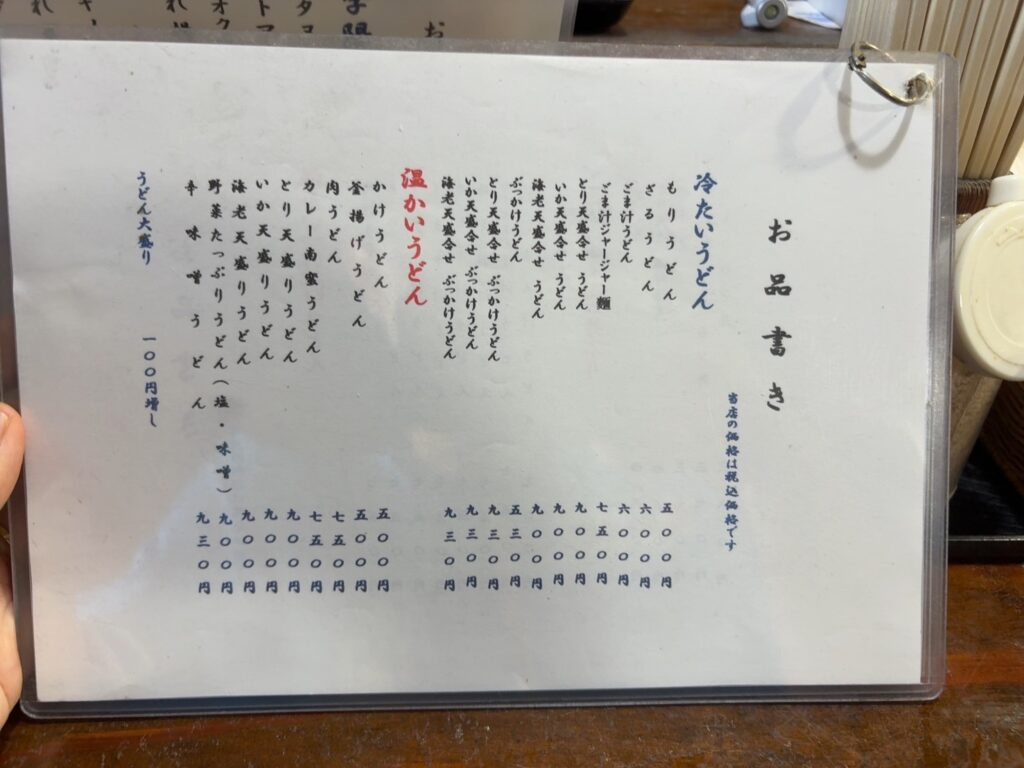 お品書き
当店の価格は税込価格です
冷たいうどん
もりうどん 五〇〇円
ざるうどん 六〇〇円
ごま汁うどん 六〇〇円
ごま汁ジャージャー麺 七五〇円
とり天盛合せ うどん 九〇〇円
いか天盛合せ うどん 九〇〇円
海老天盛合せ うどん 九〇〇円
ぶっかけうどん 五三〇円
とり天盛合せ ぶっかけうどん 九三〇円
いか天盛合せ ぶっかけうどん 九三〇円
海老天盛合せ ぶっかけうどん 九三〇円
温かいうどん
かけうどん 五〇〇円
釜揚げうどん 五〇〇円
肉うどん 七五〇円
カレー南蛮うどん 七五〇円
とり天盛りうどん 九〇〇円
いか天盛りうどん 九〇〇円
海老天盛りうどん 九〇〇円
野菜たっぷりうどん(塩・味噌) 九〇〇円
辛味噌うどん 九三〇円
うどん大盛り 一〇〇円増し